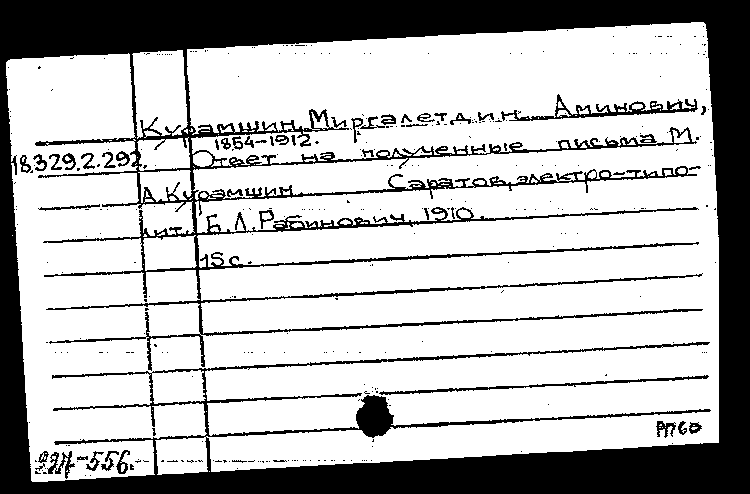 Курамшин, Миргалетдин Аминович,
1854-1912.
18.329.2.292.
Ответ на полученные письма М.
А. Курамшин. Саратов, электро-типо-
лит. Б.Л. Рабинович, 1910.
15 с.
РП60